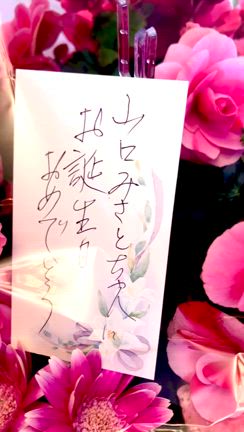 山口みさとちゃん
お誕生日
おめでとう